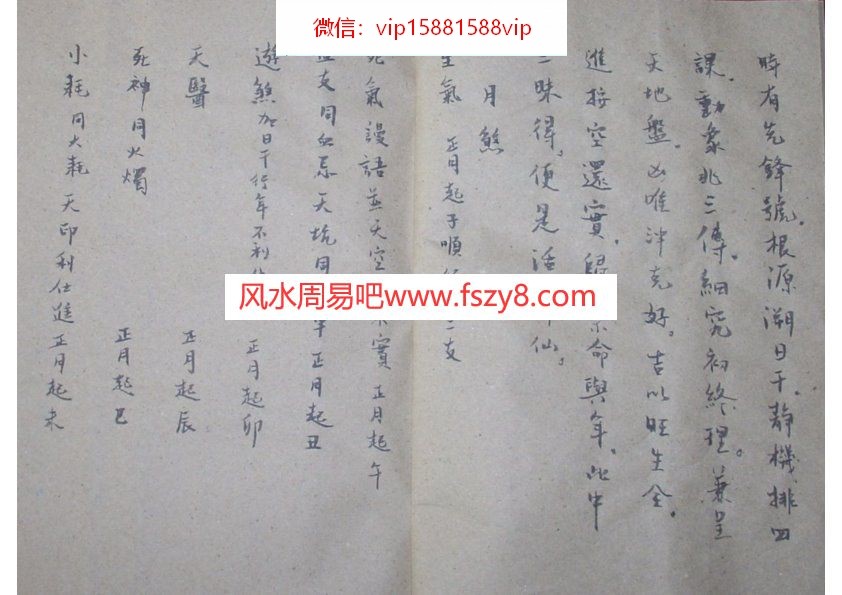 微信：vip15881588vip
時有先鋒號。根源溯日干。靜機排四
課。動象兆三傳。細究初終理。兼呈
天地盤。凶唯沖克好。吉以旺生全。
進接空還實。命與年。此中
三昧得。便是活仙。
月煞
生氣 正月起子順二支
死氣謾語並天空實 正月起午
支同血忌天坑同 正月起丑
遊煞加日干行年不利 正月起卯
天醫 正月起辰
死神同火燭 正月起巳
小耗同大耗 天印利仕進 正月起未
风水周易吧www.fszy8.com